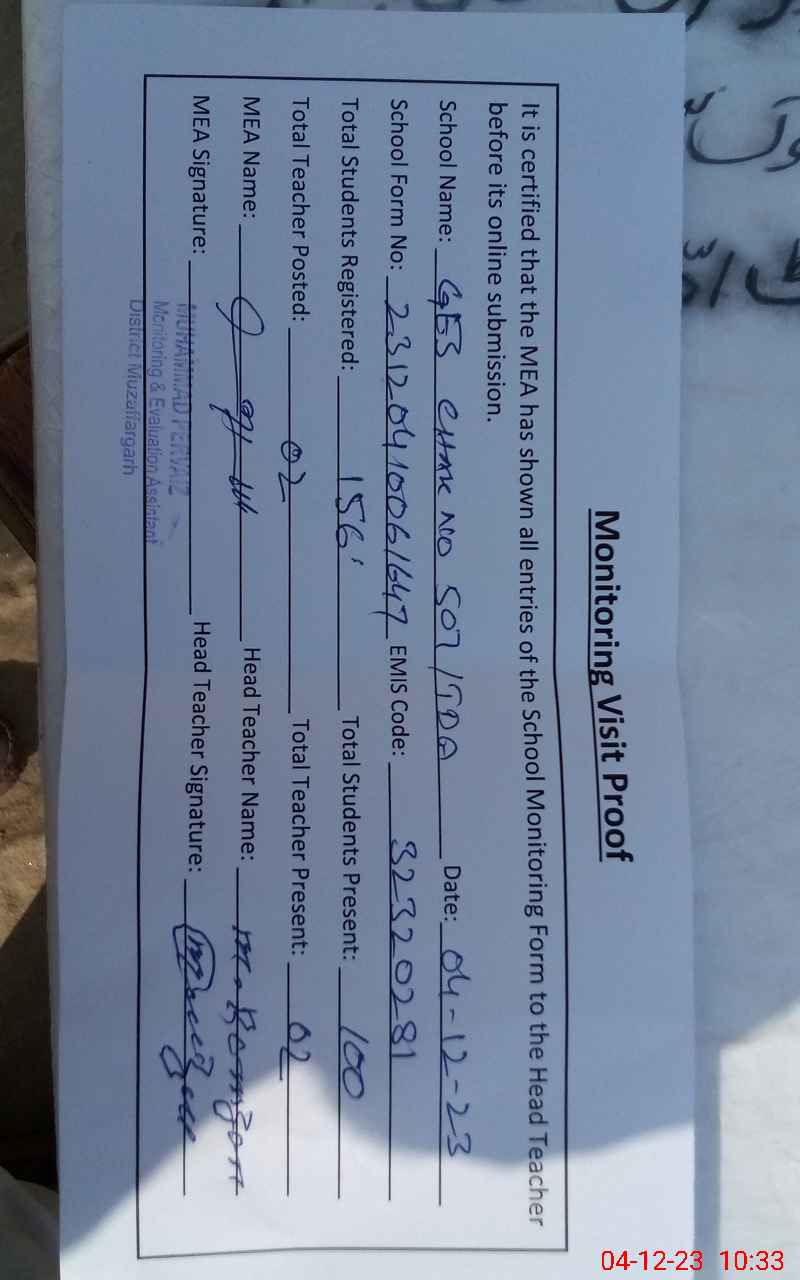 Monitoring Visit Proof
It is certified that the MEA has shown all entries of the School Monitoring Form to the Head Teacher
before its online submission.
School Name: GES CHAK NO 507/TDA Date: 04-12-23
School Form No: 23120410061647 EMIS Code: 32320281
Total Students Registered: 156 Total Students Present: 100
Total Teacher Posted: 02 Total Teacher Present: 02
MEA Name: Head Teacher Name: M. Ramzan
MEA Signature: Head Teacher Signature:
MUHAMMAD PERVAIZ
Monitoring & Evaluation Assistant
District Muzaffargarh
04-12-23 10:33